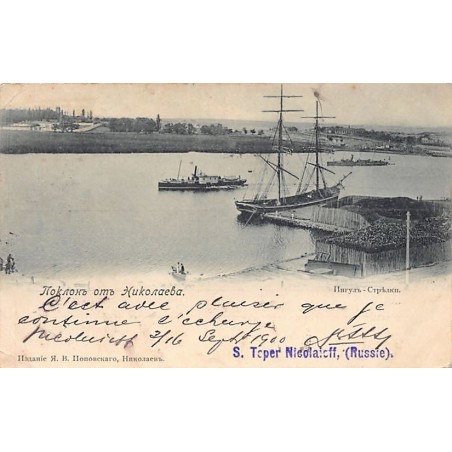 Поклонъ отъ Николаева.
Ингулъ-Стрѣлки.
C'est avec plaisir que je
continue l'échange
Nicolaieff 3/16 Sept 1900
S. Toper Nicolaïeff, (Russie).
Изданіе Я. В. Поповскаго, Николаевъ.